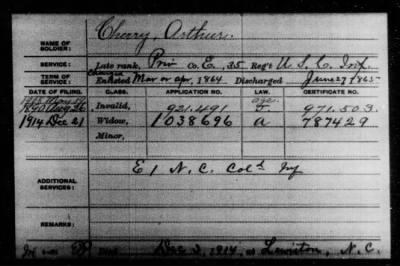 Cherry, Arthur.
NAME OF SOLDIER:
SERVICE: Late rank, Priv Co. E, 35 Reg't U.S.C. Inf.
TERM OF SERVICE: Enlisted Mar or Apr, 1864 Discharged June 27 1865
DATE OF FILING. CLASS. APPLICATION NO. LAW. CERTIFICATE NO.
age
Aug 26 Invalid, 921.491 971.503.
1914 Dec 21 Widow, 1038696 a 787429
Minor,
ADDITIONAL SERVICES: E 1 N.C. Col'd Inf
REMARKS:
Died Dec 3, 1914, at Lewiston, N.C.